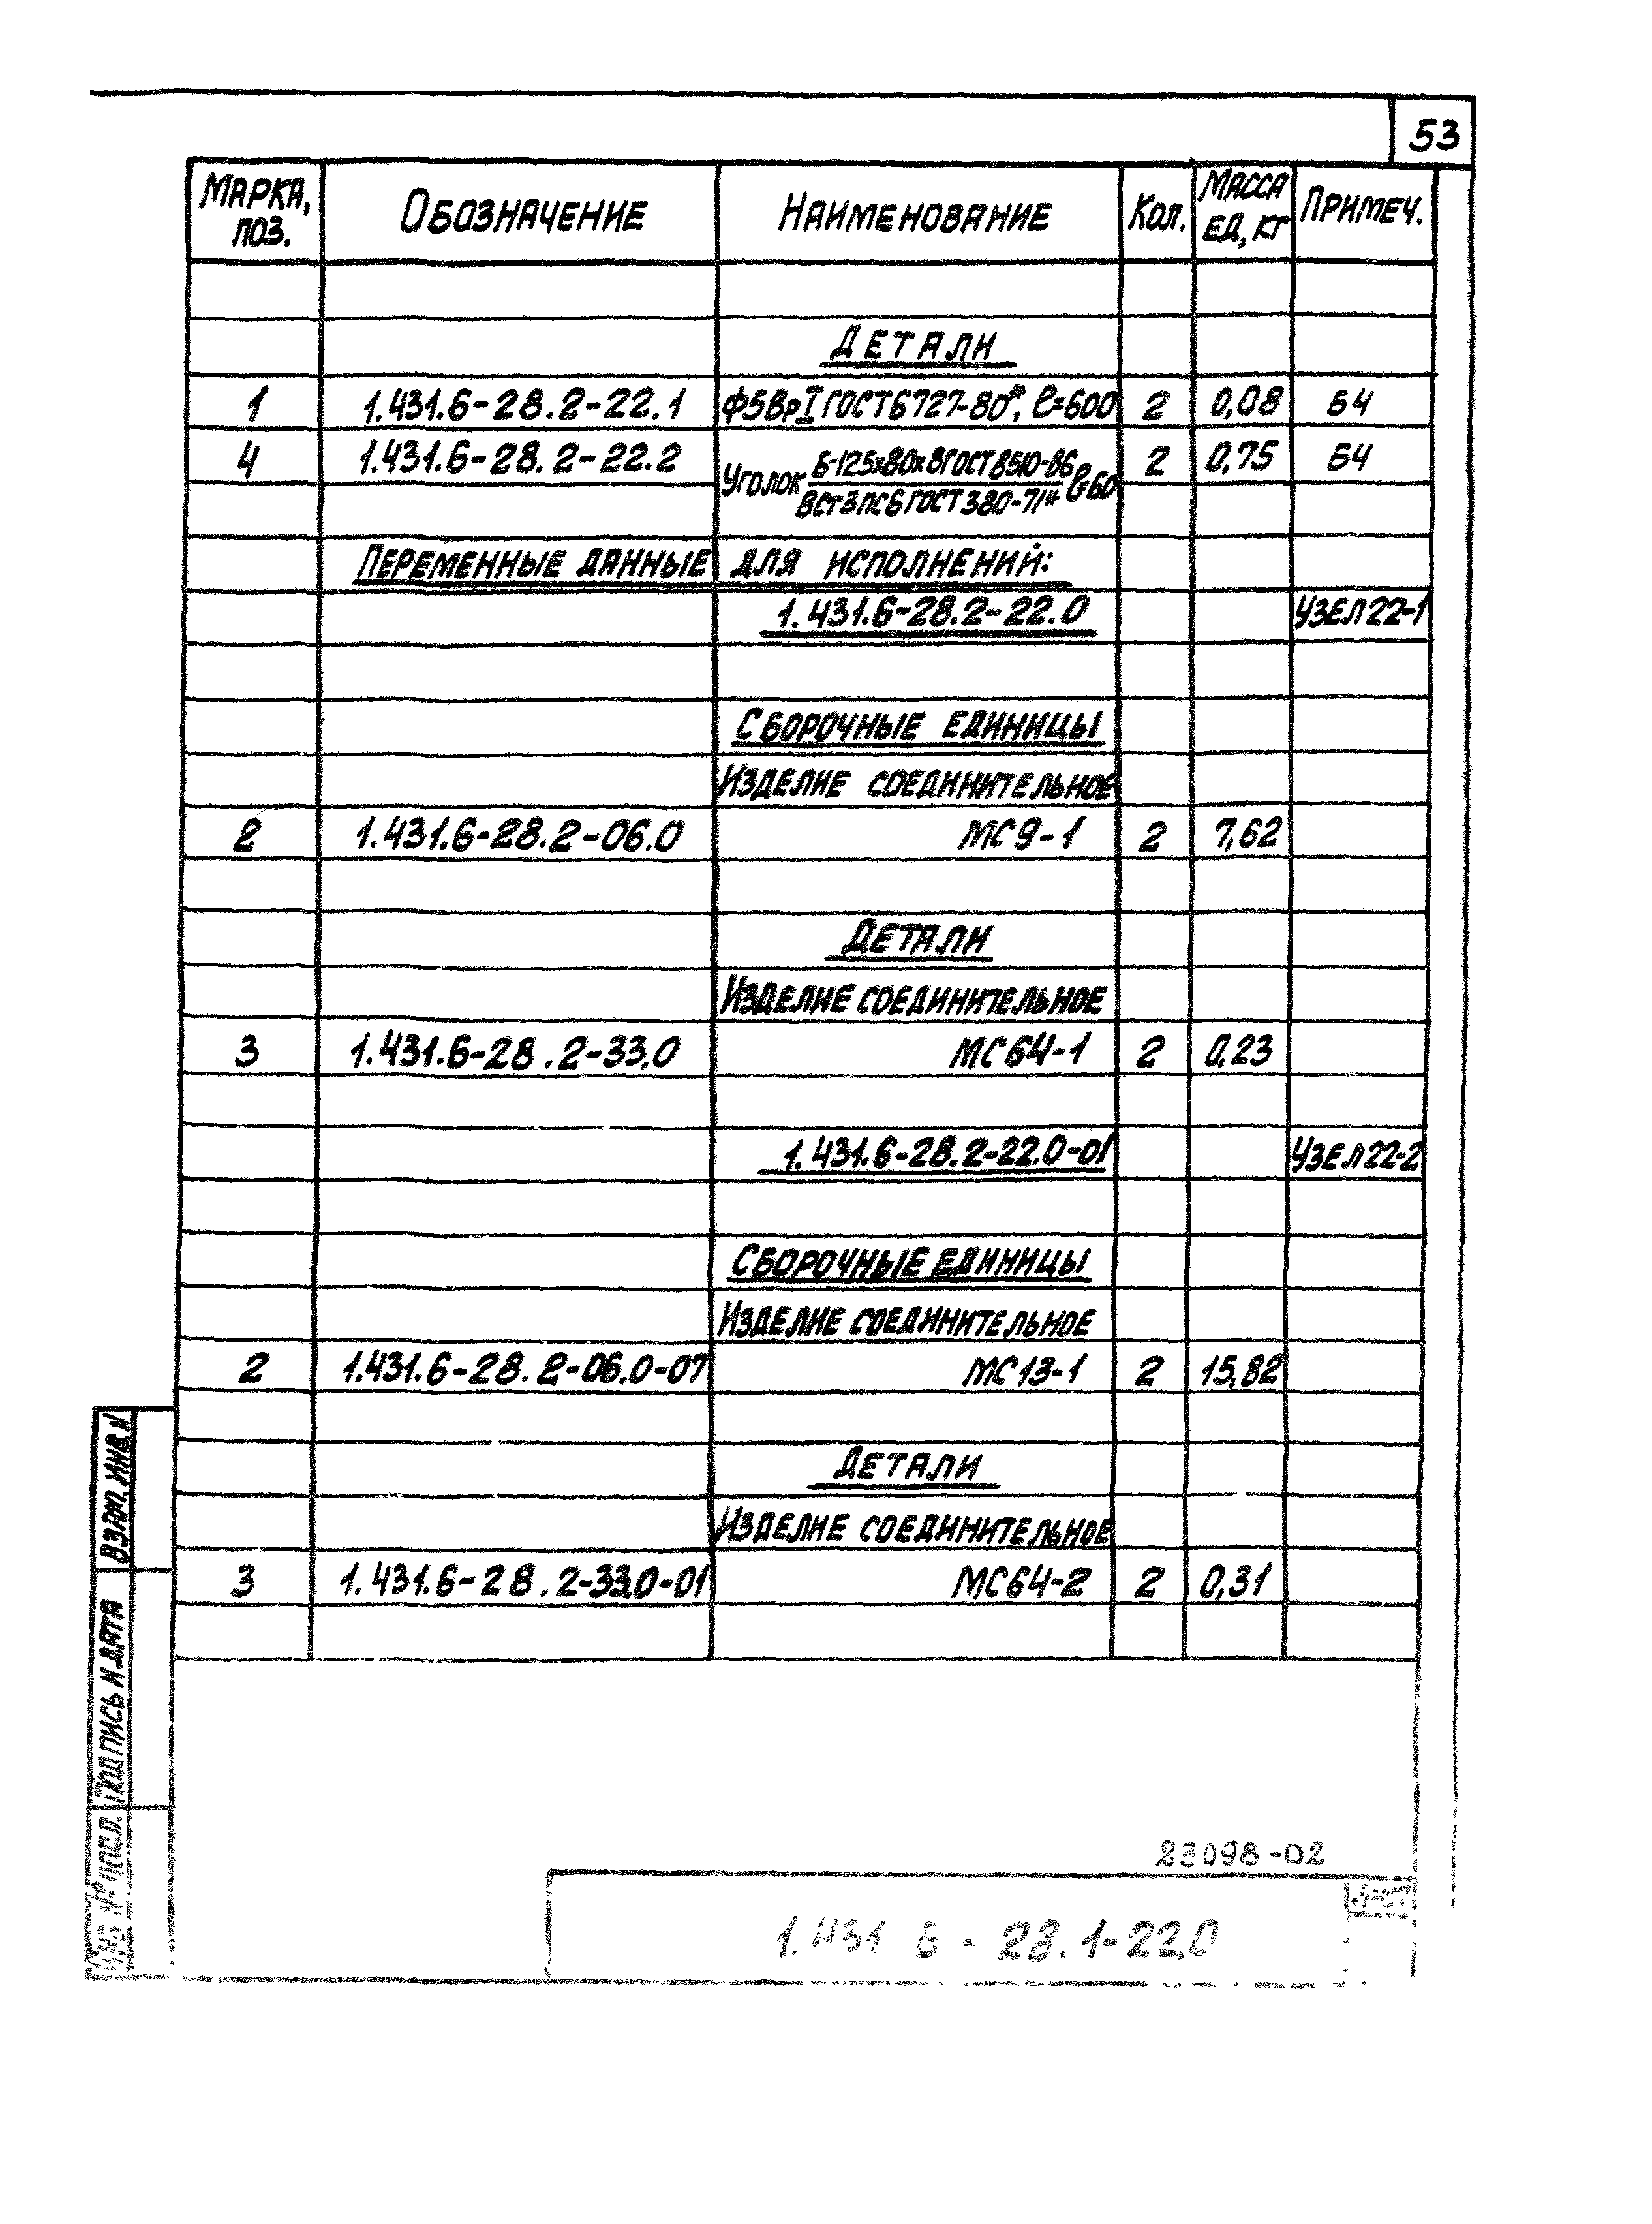 53
Марка, поз. Обозначение Наименование Кол. Масса ед, кг Примеч.
Детали
1 1.431.6-28.2-22.1 ф5ВрI ГОСТ 6727-80*, ℓ=600 2 0,08 Б4
4 1.431.6-28.2-22.2 Уголок Б-125х80х8 ГОСТ 8510-86 2 0,75 Б4
ВСт3пс6 ГОСТ 380-71* ℓ=60
Переменные данные для исполнений:
1.431.6-28.2-22.0 Узел 22-1
Сборочные единицы
Изделие соединительное
2 1.431.6-28.2-06.0 МС9-1 2 7,62
Детали
Изделие соединительное
3 1.431.6-28.2-33.0 МС64-1 2 0,23
1.431.6-28.2-22.0-01 Узел 22-2
Сборочные единицы
Изделие соединительное
2 1.431.6-28.2-06.0-07 МС13-1 2 15,82
Детали
Изделие соединительное
3 1.431.6-28.2-33.0-01 МС64-2 2 0,31
Взам. инв. N
Подпись и дата
Инв. № подл.
23098-02
1.431.6-28.1-22.0